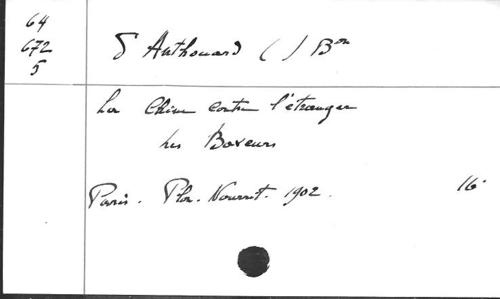 64
672
5
d'Anthouard ( ) Bon
La Chine contre l'étranger
Les Boxeurs
Paris. Plon. Nourrit. 1902.
16°